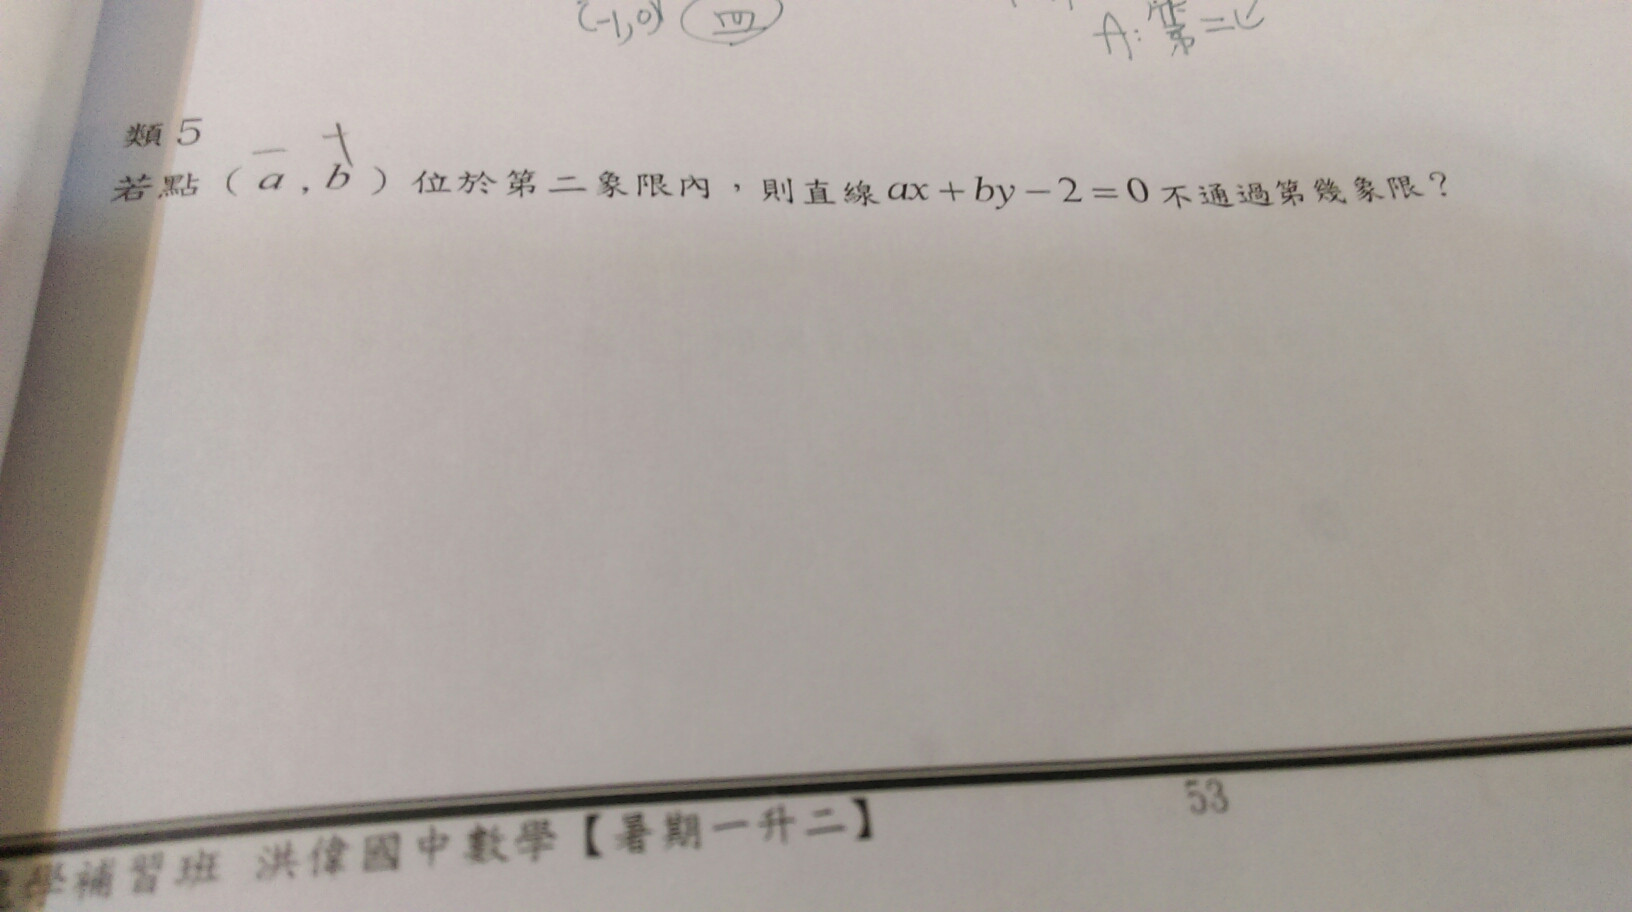 (-1,0) 四
A: 第二
類 5
－ ＋
若點（a , b）位於第二象限內，則直線 ax + by − 2 = 0 不通過第幾象限？
53
學補習班 洪偉國中數學【暑期一升二】